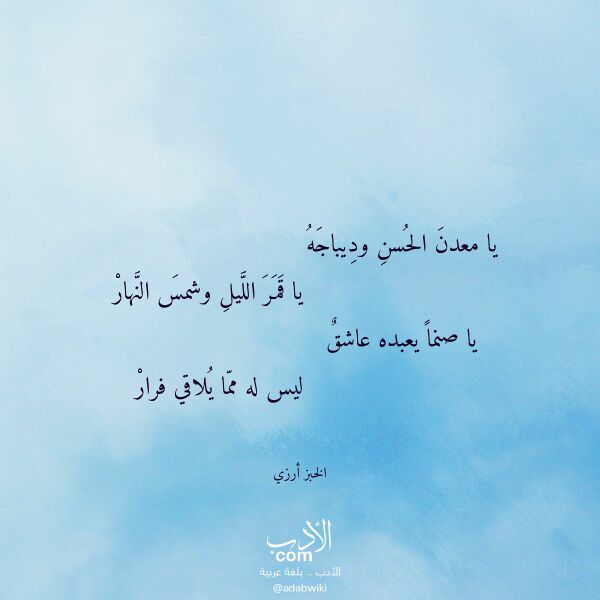 يا معدنَ الحُسنِ ودِيباجَهُ
يا قَمَرَ اللَّيلِ وشمسَ النَّهارْ
يا صنماً يعبده عاشقٌ
ليس له ممّا يُلاقي فرارْ
الخبز أرزي
الأدب
com
الأدب .. بلغة عربية
@adabwiki